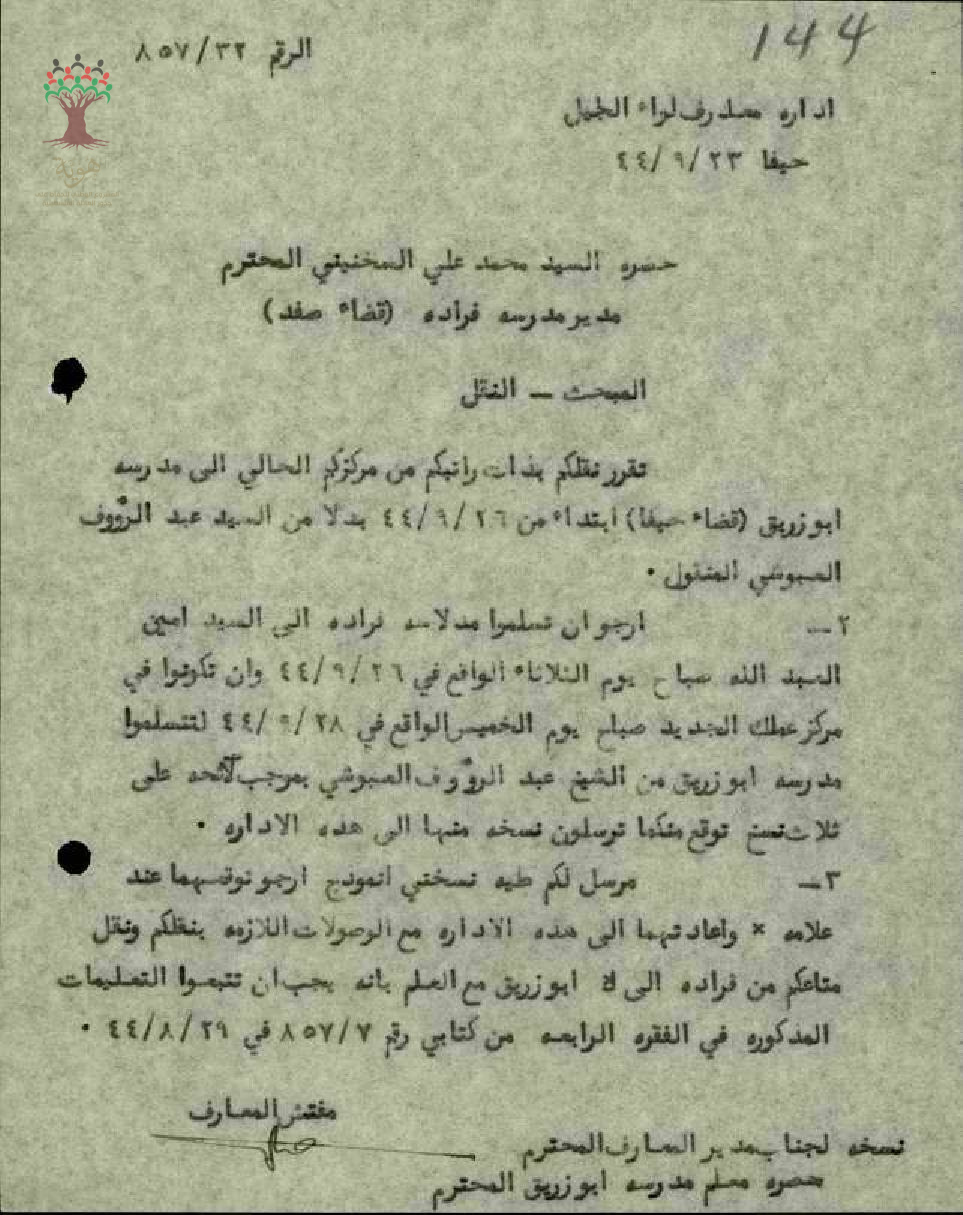 144
الرقم ٨٥٧/٣٢
اداره معارف لواء الجليل
حيفا ٤٤/٩/٢٣
حضره السيد محمد علي السخنيني المحترم
مدير مدرسه فراده (قضاء صفد)
المبحث – النقل
تقرر نقلكم بذات راتبكم من مركزكم الحالي الى مدرسه
ابو زريق (قضاء حيفا) ابتداء من ٤٤/٩/٢٦ بدلا من السيد عبد الرؤوف
العبوشي المنقول .
٢– ارجو ان تسلموا مدلاسه فراده الى السيد امين
السيد الله صباح يوم الثلاثاء الواقع في ٤٤/٩/٢٦ وان تكونوا في
مركز عملك الجديد صباح يوم الخميس الواقع في ٤٤/٩/٢٨ لتتسلموا
مدرسه ابو زريق من الشيخ عبد الرؤوف العبوشي بموجب لائحه على
ثلاث نسخ توقع منكما ترسلون نسخه منها الى هذه الاداره .
٣– مرسل لكم طيه نسختي انموذج ارجو توقيعهما عند
علامه × واعادتهما الى هذه الاداره مع الوصولات اللازمه بنقلكم ونقل
متاعكم من فراده الى لا ابو زريق مع العلم بانه يجب ان تتبعوا التعليمات
المذكوره في الفقره الرابعه من كتابي رقم ٨٥٧/٧ في ٤٤/٨/٢٩ .
مفتش المعارف
نسخه لجناب مدير المعارف المحترم
حضره معلم مدرسه ابو زريق المحترم